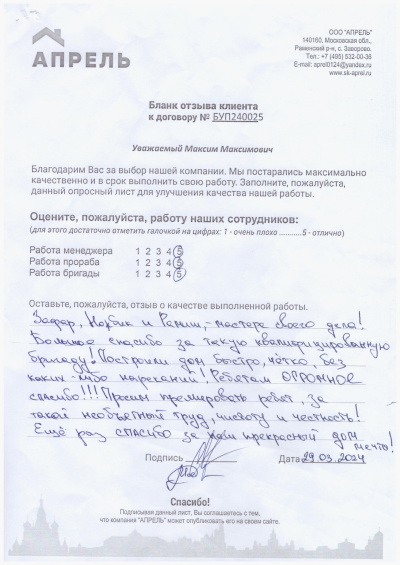 АПРЕЛЬ
ООО "АПРЕЛЬ"
140160, Московская обл.,
Раменский р-н, с. Заворово.
Тел.: +7 (495) 532-00-36
E-mail: aprel0124@yandex.ru
www.sk-aprel.ru
Бланк отзыва клиента
к договору № БУП240025
Уважаемый Максим Максимович
Благодарим Вас за выбор нашей компании. Мы постарались максимально
качественно и в срок выполнить свою работу. Заполните, пожалуйста,
данный опросный лист для улучшения качества нашей работы.
Оцените, пожалуйста, работу наших сотрудников:
(для этого достаточно отметить галочкой на цифрах: 1 - очень плохо ...........5 - отлично)
Работа менеджера 1 2 3 4 5
Работа прораба 1 2 3 4 5
Работа бригады 1 2 3 4 5
Оставьте, пожалуйста, отзыв о качестве выполненной работы.
Зафар, и - мастера своего дела!
Большое спасибо за такую квалифицированную
бригаду! Построили дом быстро, чётко, без
каких-либо нареканий! Ребятам ОГРОМНОЕ
спасибо!!! Просим премировать ребят, за
такой необъятный труд, чистоту и честность!
Ещё раз СПАСИБО за наш прекрасный дом
мечты!
Подпись Дата 29.03.2024
Спасибо!
Подписывая данный лист, Вы соглашаетесь с тем,
что компания "АПРЕЛЬ" может опубликовать его на своем сайте.